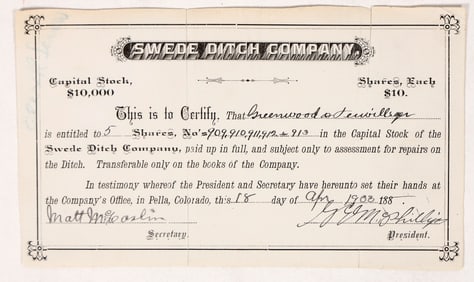 SWEDE DITCH COMPANY.
Capital Stock, $10,000
Shares, Each $10.
This is to Certify, That Greenwood &
is entitled to 5 Shares, No's 909, 910, 911, 912 & 913 in the Capital Stock of the
Swede Ditch Company, paid up in full, and subject only to assessment for repairs on
the Ditch. Transferable only on the books of the Company.
In testimony whereof the President and Secretary have hereunto set their hands at
the Company's Office, in Pella, Colorado, this 18 day of Apr 1903 188
Matt McCaslin
McPhillips
Secretary.
President.